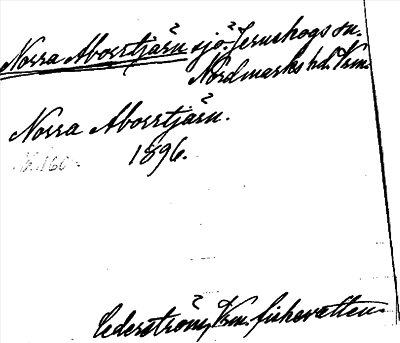 Norra Aborrtjärn sjö. Jernskogs sn.
Nordmarks hd. Vrm.
Norra Aborrtjärn.
1896.
Cederström, Vrm. fiskevatten